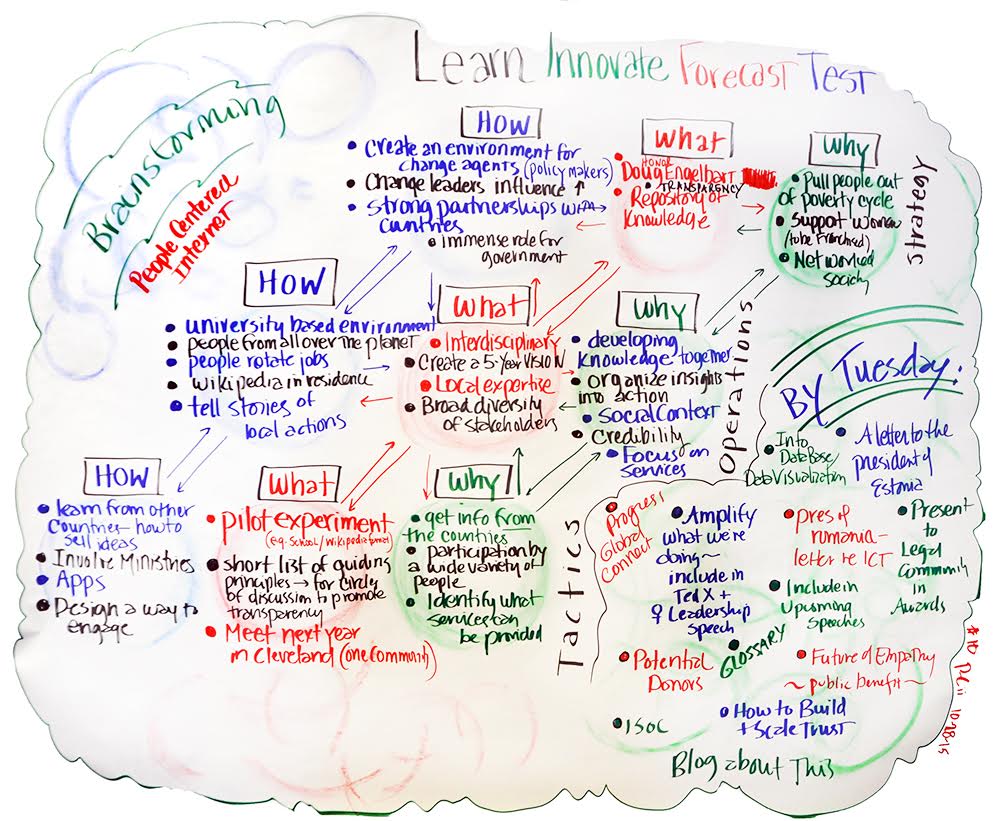 Learn Innovate Forecast Test
Brainstorming
People Centered
Internet
HOW
• Create an environment for
change agents (policy makers)
• Change leaders influence ↑
• strong partnerships with →
countries
• immense role for
government
What
• HONOR
Doug Engelbart
• TRANSPARENCY
• Repository of
Knowledge
why
• Pull people out
of poverty cycle
• Support Women
(to be franchised)
• Networked
society
Strategy
HOW
• university based environment
• people from all over the planet
• people rotate jobs
• wikipedia in residence
• tell stories of
local actions
What
• Interdisciplinary
• Create a 5-year VISION
• Local expertise
• Broad diversity
of stakeholders
why
• developing
knowledge together
• organize insights
into action
• Social Context
• Credibility
• Focus on
services
Operations
HOW
• learn from other
countries — how to
sell ideas
• Involve Ministries
• Apps
• Design a way to
engage
What
• pilot experiment
(e.g. School / Wikipedia
• short list of guiding
principles → for circle
of discussion to promote
transparency
• Meet next year
in Cleveland (one Community)
why
• get info from
the countries
• participation by
a wide variety of
people
• Identify what
services can
be provided
Tactics
BY Tuesday!
• Into
DataBase/
Data Visualization
• A letter to the
president of
Estonia
• Progress
Global
Connect
• Amplify
what we're
doing ~
include in
Ted X +
♀ Leadership
Speech
• pres of
romania -
letter re ICT
• Present
to
Legal
Community
in
Awards
• Include in
Upcoming
Speeches
• Potential
Donors
• GLOSSARY
• Future of Empathy
~ public benefit ~
• ISOC
• How to Build
+ Scale Trust
Blog about This
10-28-15